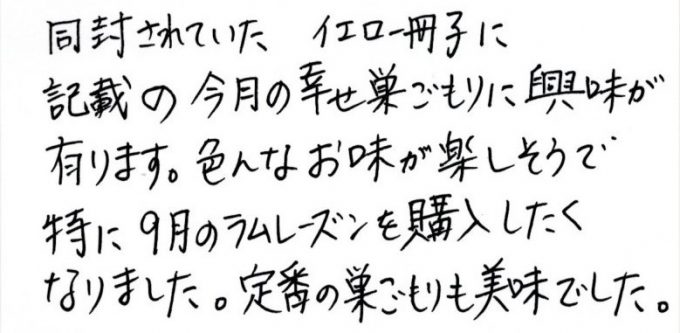 同封されていた イエロー冊子に
記載の今月の幸せ巣ごもりに興味が
有ります。色んなお味が楽しそうで
特に9月のラムレーズンを購入したく
なりました。定番の巣ごもりも美味でした。